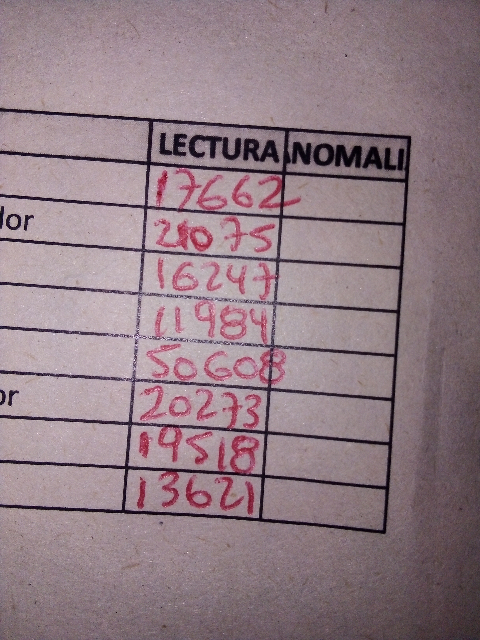 LECTURA NOMALI
17662
dor 21075
16247
11984
50608
or 20273
19518
13621